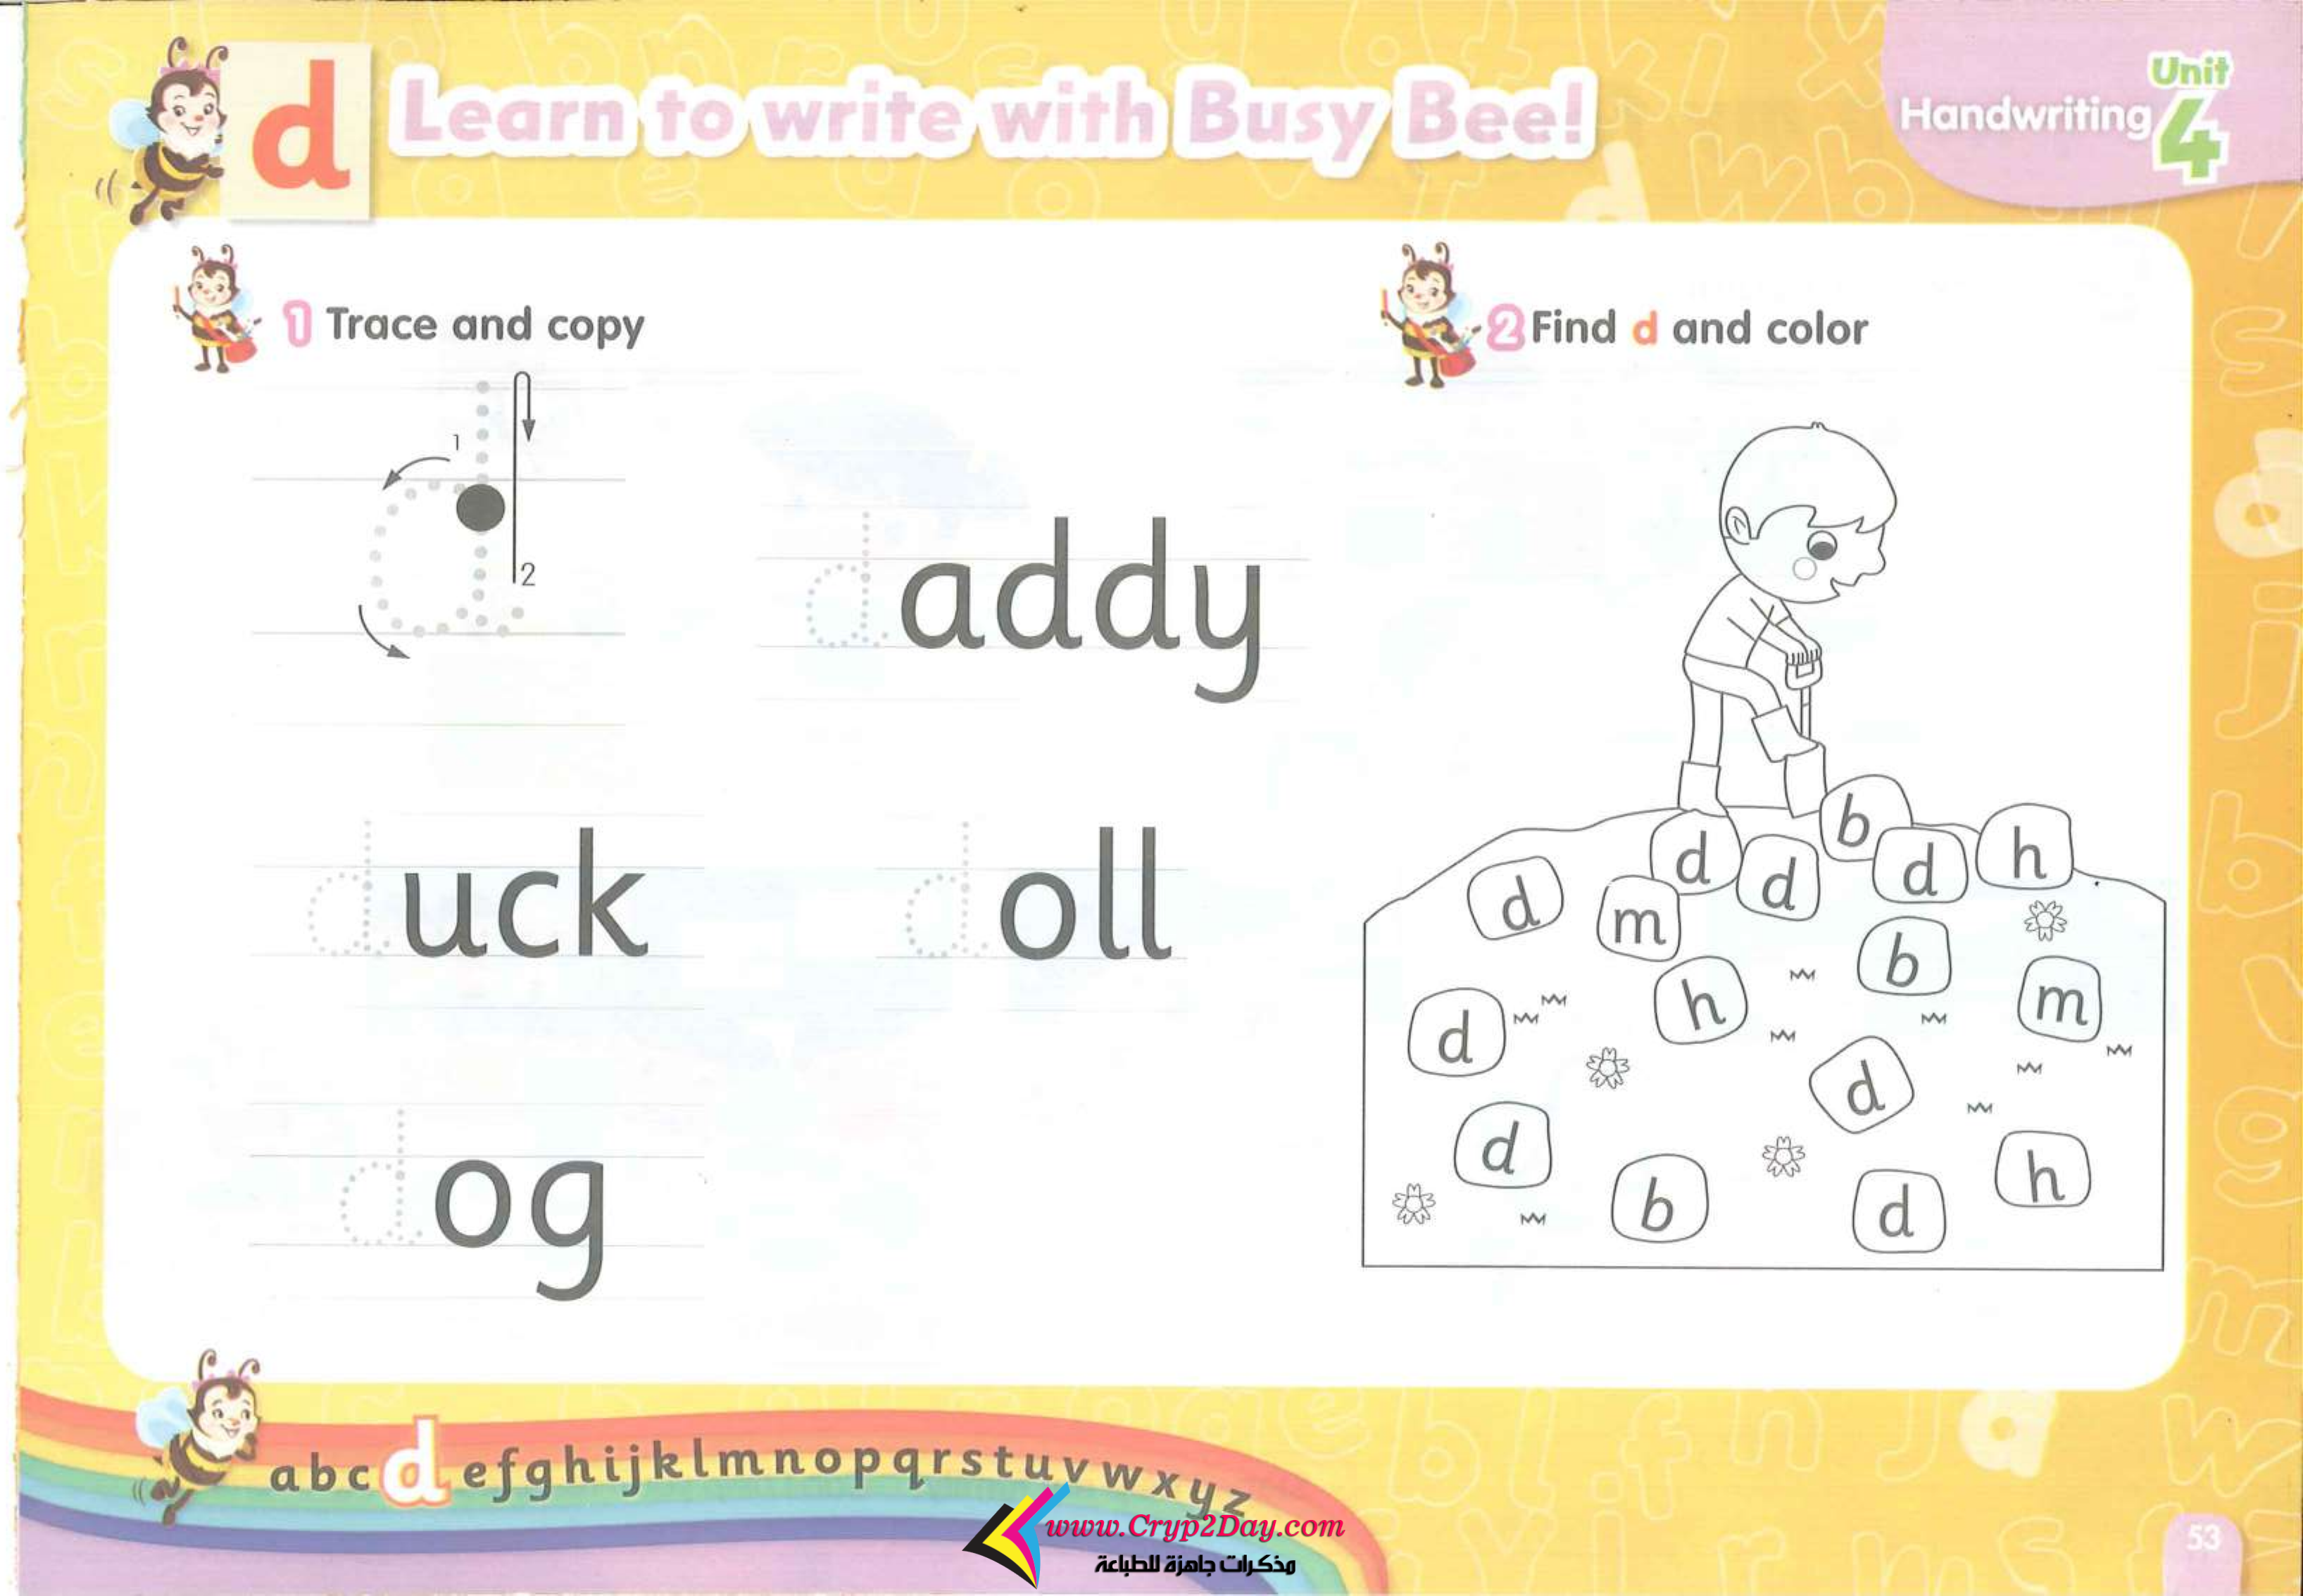 d Learn to write with Busy Bee!
Handwriting Unit 4
1 Trace and copy
1
2
d
daddy
duck
doll
dog
2 Find d and color
b
d d d h
d m
b
h m
d
d
d
b d h
a b c d e f g h i j k l m n o p q r s t u v w x y z
www.Cryp2Day.com
مذكرات جاهزة للطباعة
53